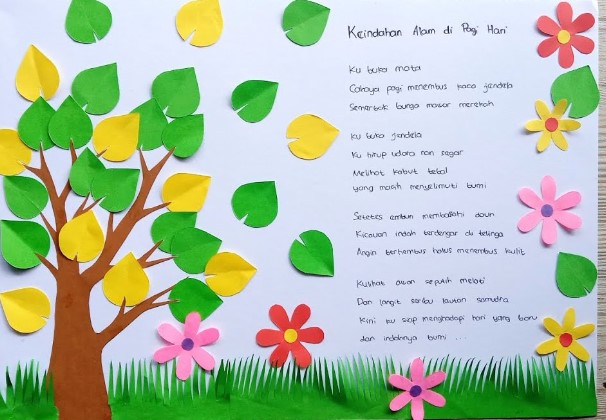 Keindahan Alam di Pagi Hari
Ku buka mata
Cahaya pagi menembus kaca jendela
Semerbak bunga mawar merekah
Ku buka jendela
Ku hirup udara nan segar
Melihat kabut tebal
yang masih menyelimuti bumi
Setetes embun membasahi daun
Kicauan indah terdengar di telinga
Angin berhembus halus menembus kulit
Kulihat awan seputih melati
Dan langit seribu lautan samudra
Kini ku siap menghadapi hari yang baru
dan indahnya bumi ...